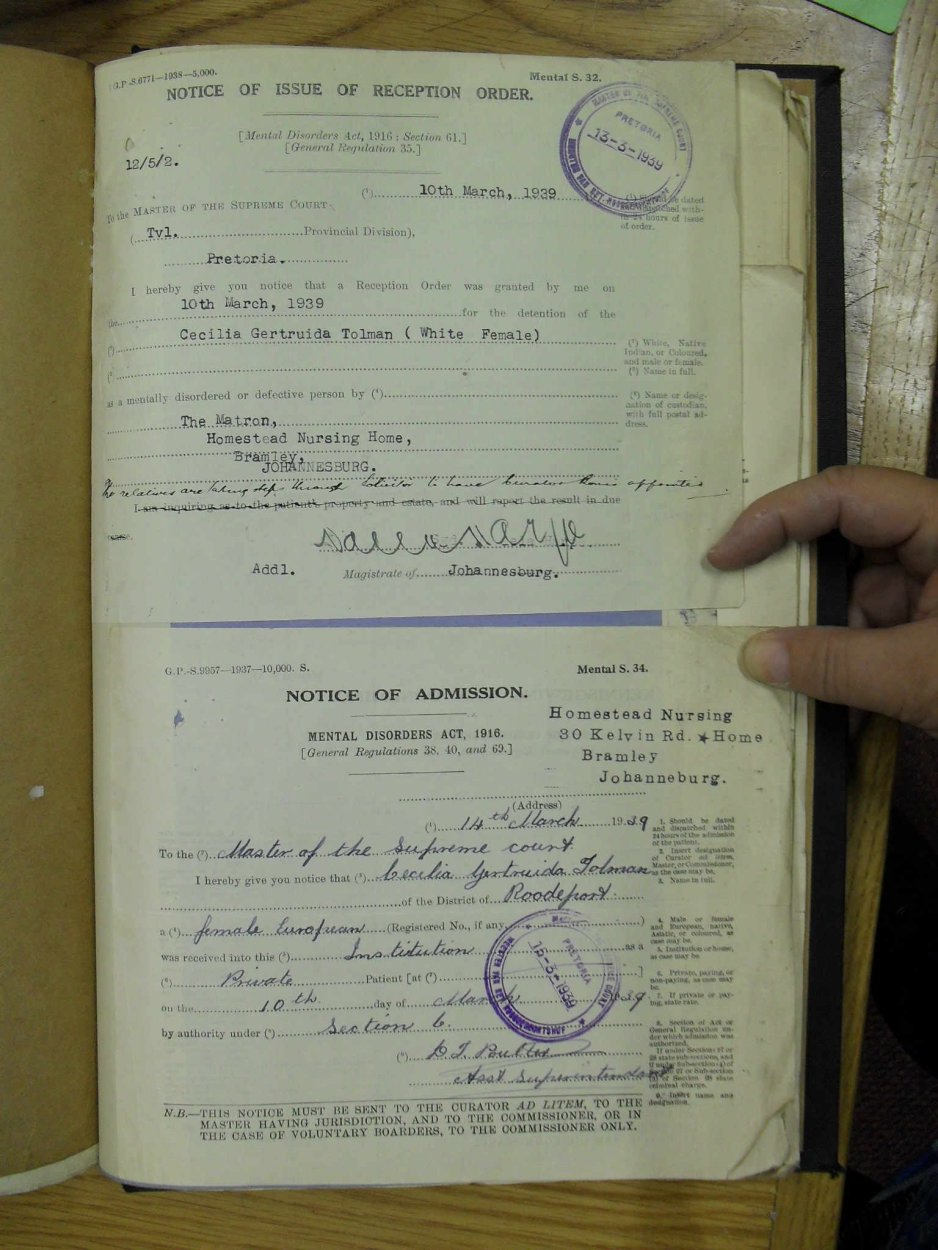 G.P.-S.6771—1938—5,000.
Mental S. 32.
NOTICE OF ISSUE OF RECEPTION ORDER.
[Mental Disorders Act, 1916 : Section 61.]
[General Regulation 35.]
12/5/2.
MASTER OF THE SUPREME COURT
PRETORIA
13-3-1939
(¹) 10th March, 1939
To the MASTER OF THE SUPREME COURT
( Tvl. Provincial Division),
Pretoria.
I hereby give you notice that a Reception Order was granted by me on
the 10th March, 1939 for the detention of the
(²) Cecilia Gertruida Tolman ( White Female)
(³)
(²) White, Native
Indian, or Coloured,
and male or female.
(³) Name in full.
as a mentally disordered or defective person by (⁴)
(⁴) Name or desig-
nation of custodian,
with full postal ad-
dress.
The Matron,
Homestead Nursing Home,
Bramley,
JOHANNESBURG.
The relatives are taking steps through to have curator bonis appointed
I am inquiring as to the patient's property and estate, and will report the result in due
course.
Addl. Magistrate of Johannesburg.
G.P.-S.9957—1937—10,000. S.
Mental S. 34.
NOTICE OF ADMISSION.
MENTAL DISORDERS ACT, 1916.
[General Regulations 38, 40, and 69.]
Homestead Nursing
30 Kelvin Rd. ★ Home
Bramley
Johanneburg.
(Address)
(¹) 14th March 1939
1. Should be dated
and dispatched within
24 hours of the admission
of the patient.
2. Insert designation
of Curator ad litem,
Master, or Commissioner,
as the case may be.
3. Name in full.
To the (²) Master of the Supreme court
I hereby give you notice that (³) Cecilia Gertruida Tolman
of the District of Roodeport.
a (⁴) female European (Registered No., if any )
was received into this (⁵) Institution as a
(⁶) Private Patient [at (⁷) ]
on the 10th day of March 1939
by authority under (⁸) Section 6.
4. Male or female
and European, native,
Asiatic, or coloured, as
case may be.
5. Institution or home,
as case may be.
6. Private, paying, or
non-paying, as case may
be.
7. If private or pay-
ing, state rate.
8. Section of Act or
General Regulation un-
der which admission was
authorized.
9. Insert name and
designation.
PRETORIA
15-3-1939
(⁹) D J Butler
Asst Superintendent
N.B.—THIS NOTICE MUST BE SENT TO THE CURATOR AD LITEM, TO THE
MASTER HAVING JURISDICTION, AND TO THE COMMISSIONER, OR IN
THE CASE OF VOLUNTARY BOARDERS, TO THE COMMISSIONER ONLY.